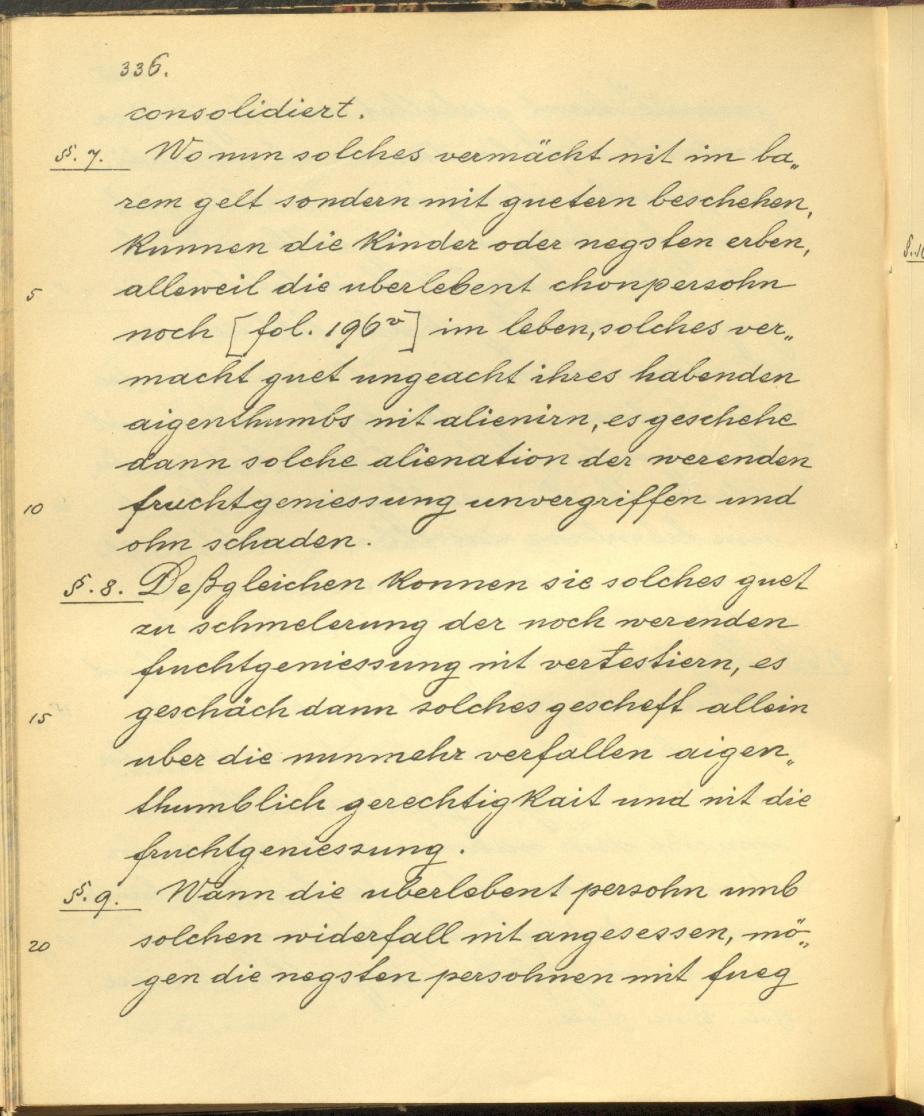 336.
consolidiert.
§. 7. Wo nun solches vermächt nit im ba„
rem gelt sondern mit guetern beschehen,
kunnen die kinder oder negsten erben,
5 alleweil die uberlebent chonpersohn
noch [fol. 196v] im leben, solches ver„
macht guet ungeacht ihres habenden
aigenthumbs nit alienirn, es geschehe
dann solche alienation der werenden
10 fruchtgeniessung unvergriffen und
ohn schaden.
§. 8. Deßgleichen konnen sie solches guet
zu schmelerung der noch werenden
fruchtgeniessung nit vertestiern, es
15 geschäch dann solches gescheft allein
uber die nunmehr verfallen aigen„
thumblich gerechtigkait und nit die
fruchtgeniessung.
§. 9. Wann die uberlebent persohn umb
20 solchen widerfall nit angesessen, mö„
gen die negsten persohnen mit fueg